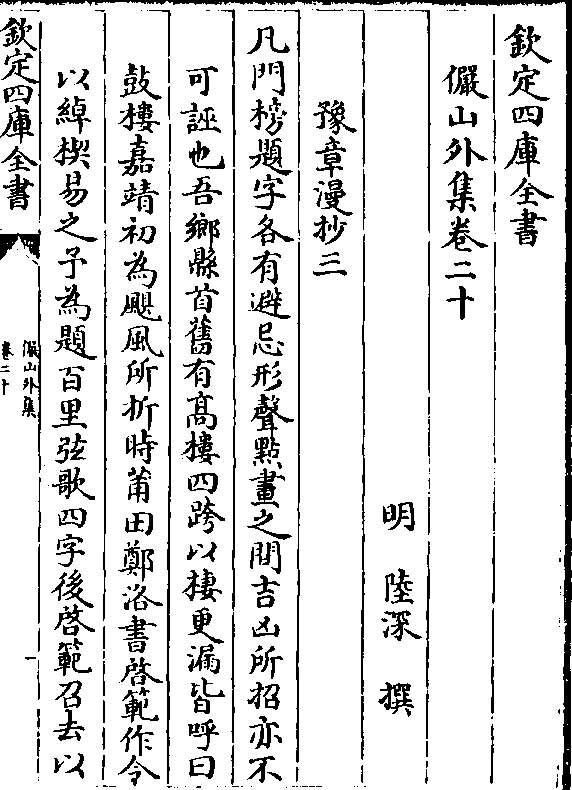 欽定四庫全書
儼山外集卷二十
明 陸深 撰
豫章漫抄三
凡門榜題字各有避忌形聲點畫之間吉凶所招亦不
可誣也吾鄉縣首舊有髙樓四跨以棲更漏皆呼曰
鼓樓嘉靖初為颶風所折時莆田鄭洛書啓範作令
以綽楔易之予為題百里弦歌四字後啓範召去以
欽定四庫全書
儼山外集
卷二十
一